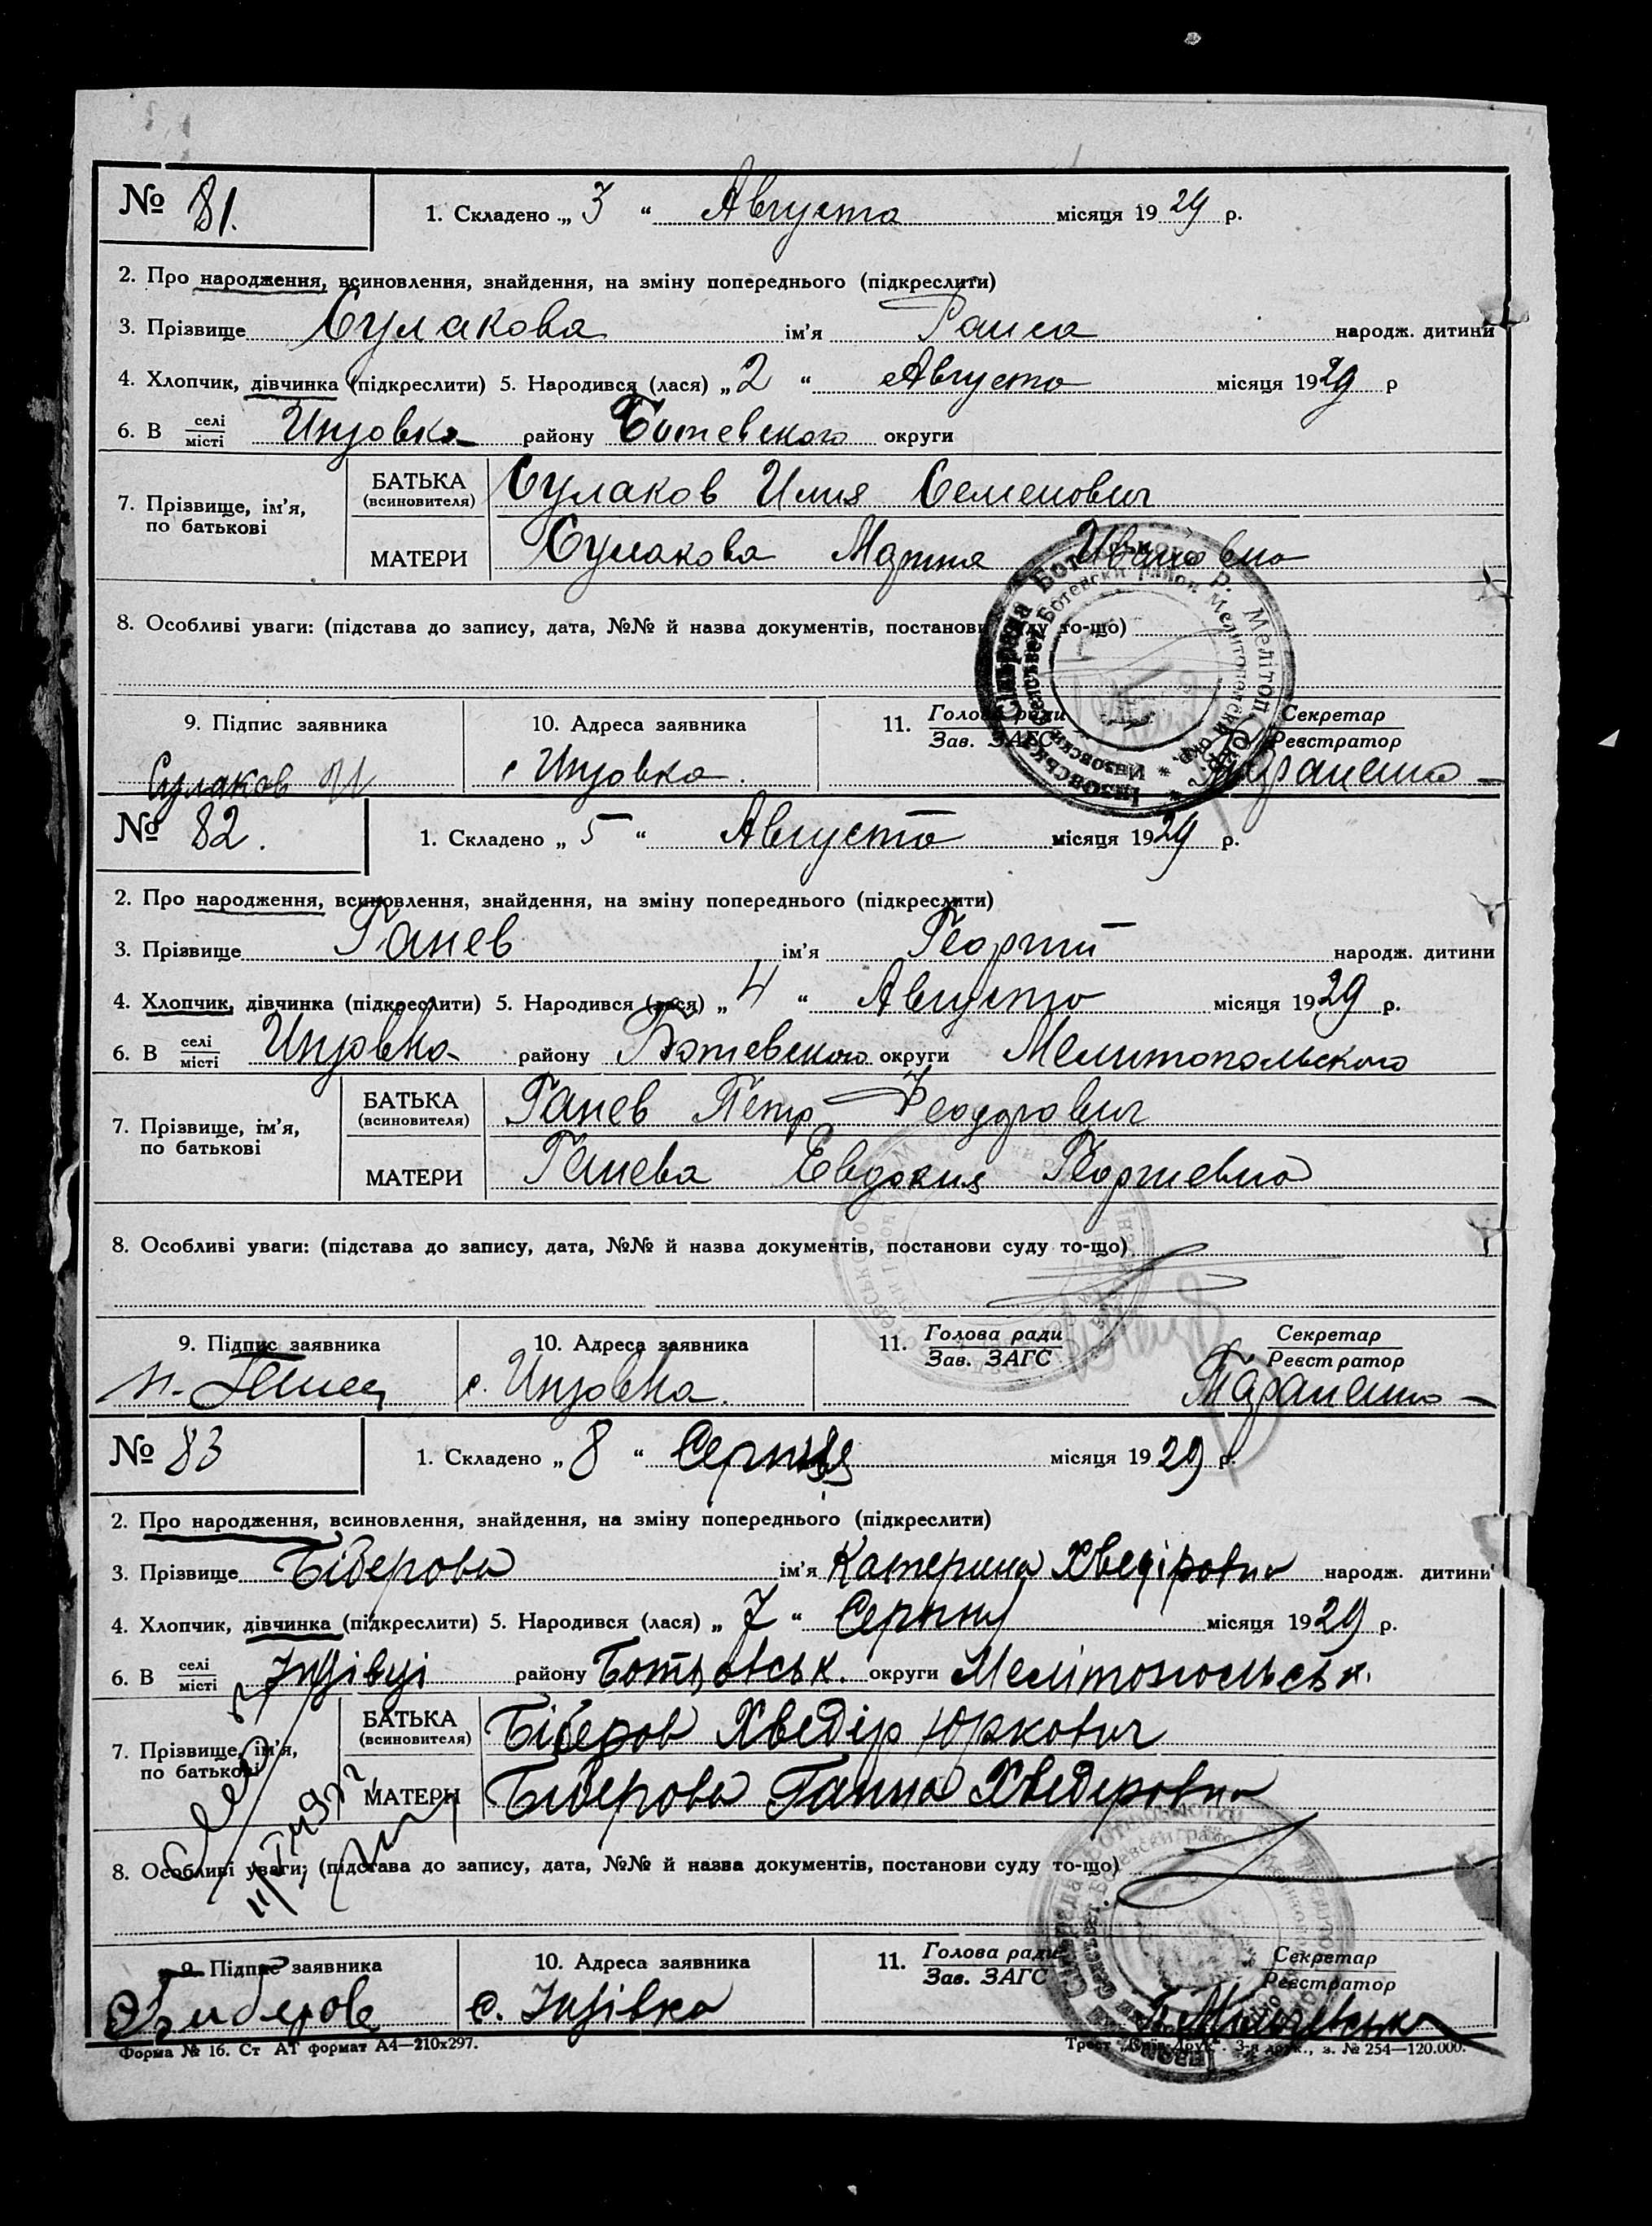 № 81. 1. Складено „ 3 “ Августа місяця 1929 р.
2. Про народження, всиновлення, знайдення, на зміну попереднього (підкреслити)
3. Прізвище Сулакова ім'я Раиса народж. дитини
4. Хлопчик, дівчинка (підкреслити) 5. Народився (лася) „ 2 “ Августа місяця 1929 р
6. В селі місті Инзовка району Ботевского округи
7. Прізвище, ім'я, по батькові
БАТЬКА (всиновителя) Сулаков Илия Семенович
МАТЕРИ Сулакова Мария Ивановна
8. Особливі уваги: (підстава до запису, дата, №№ й назва документів, постанови суду то-що)
9. Підпис заявника 10. Адреса заявника 11. Голова ради Зав. ЗАГС Секретар Реєстратор
Сулаков И с Инзовка.
№ 82. 1. Складено „ 5 “ Августа місяця 1929 р.
2. Про народження, всиновлення, знайдення, на зміну попереднього (підкреслити)
3. Прізвище Ганев ім'я Георгий народж. дитини
4. Хлопчик, дівчинка (підкреслити) 5. Народився (лася) „ 4 “ Августа місяця 1929 р.
6. В селі місті Инзовка району Ботевского округи Мелитопольского
7. Прізвище, ім'я, по батькові
БАТЬКА (всиновителя) Ганев Петр Феодорович
МАТЕРИ Ганева Евдокия Георгиевна
8. Особливі уваги: (підстава до запису, дата, №№ й назва документів, постанови суду то-що)
9. Підпис заявника 10. Адреса заявника 11. Голова ради Зав. ЗАГС Секретар Реєстратор
с. Инзовка.
№ 83 1. Складено „ 8 “ Серпня місяця 1929 р.
2. Про народження, всиновлення, знайдення, на зміну попереднього (підкреслити)
3. Прізвище Біберова ім'я Катерина Хведіровна народж. дитини
4. Хлопчик, дівчинка (підкреслити) 5. Народився (лася) „ 7 “ Серпня місяця 1929 р.
6. В селі місті Інзівці району Ботьовськ. округи Мелітопольськ.
7. Прізвище, ім'я, по батькові
БАТЬКА (всиновителя) Біберов Хведір Юркович
МАТЕРИ Біберова Ганна Хведеровна
8. Особливі уваги: (підстава до запису, дата, №№ й назва документів, постанови суду то-що)
9. Підпис заявника 10. Адреса заявника 11. Голова ради Зав. ЗАГС Секретар Реєстратор
с. Інзівка
Форма № 16. Ст АТ формат А4—210х297. Трест „Київ-Друк“. 3-я друк., з. № 254—120.000.